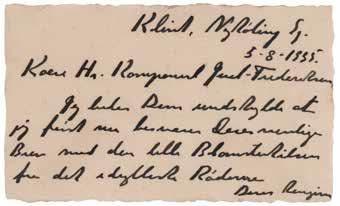 Klint, Nykøbing Sj.
5-8-1935.
Kære Hr. Komponist Juel-Frederiksen
Jeg beder Dem undskylde at
jeg først nu besvarer Deres venlige
Brev med den lille Blomsterhilsen
fra det idylliske Råderne
Deres